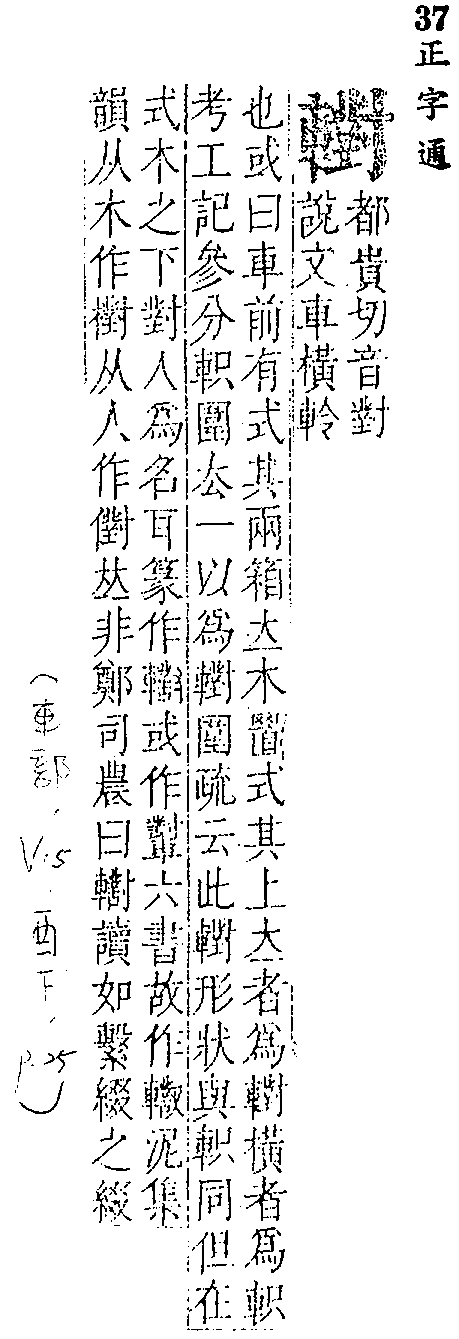 37正字通
轛
都貴切音對
說文車橫軨
也或曰車前有式其兩箱立木式其上立者爲轛橫者爲軹
考工記參分軹圍去一以爲轛圍疏云此轛形狀與軹同但在
式木之下對人爲名耳篆作轛或作六書故作泥集
韻从木作从人作𠀤非鄭司農曰轛讀如繫綴之綴
(車部, V.5. 酉下, p.25)